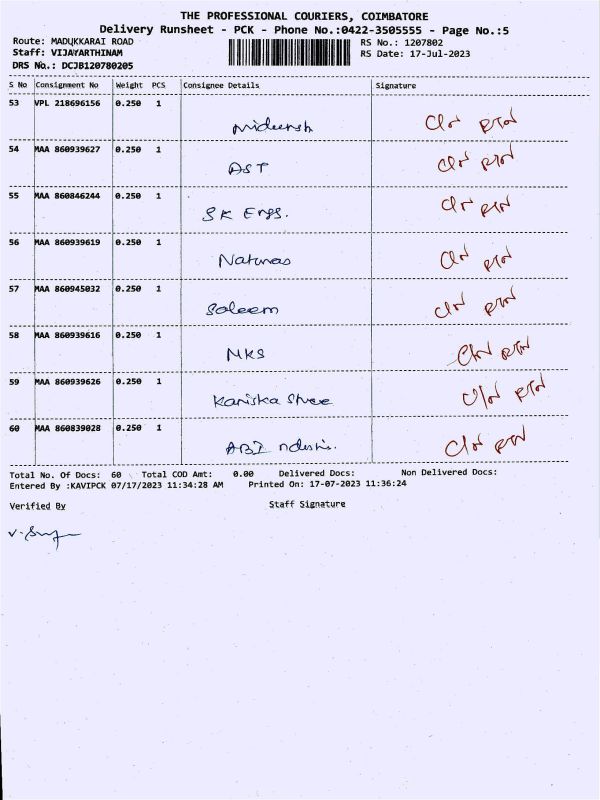 THE PROFESSIONAL COURIERS, COIMBATORE
Delivery Runsheet - PCK - Phone No.:0422-3505555 - Page No.:5
Route: MADUKKARAI ROAD RS No.: 1207802
Staff: VIJAYARTHINAM RS Date: 17-Jul-2023
DRS No.: DCJB120780205
S No Consignment No Weight PCS Consignee Details Signature
53 VPL 218696156 0.250 1
C/N RTN
54 MAA 860939627 0.250 1
AST C/N RTN
55 MAA 860846244 0.250 1
SK Engs. C/N RTN
56 MAA 860939619 0.250 1
Naturas C/N RTN
57 MAA 860945032 0.250 1
Saleem C/N RTN
58 MAA 860939616 0.250 1
MKS C/N RTN
59 MAA 860939626 0.250 1
Kaniska Shree C/N RTN
60 MAA 860839028 0.250 1
ABI C/N RTN
Total No. Of Docs: 60 Total COD Amt: 0.00 Delivered Docs: Non Delivered Docs:
Entered By :KAVIPCK 07/17/2023 11:34:28 AM Printed On: 17-07-2023 11:36:24
Verified By Staff Signature